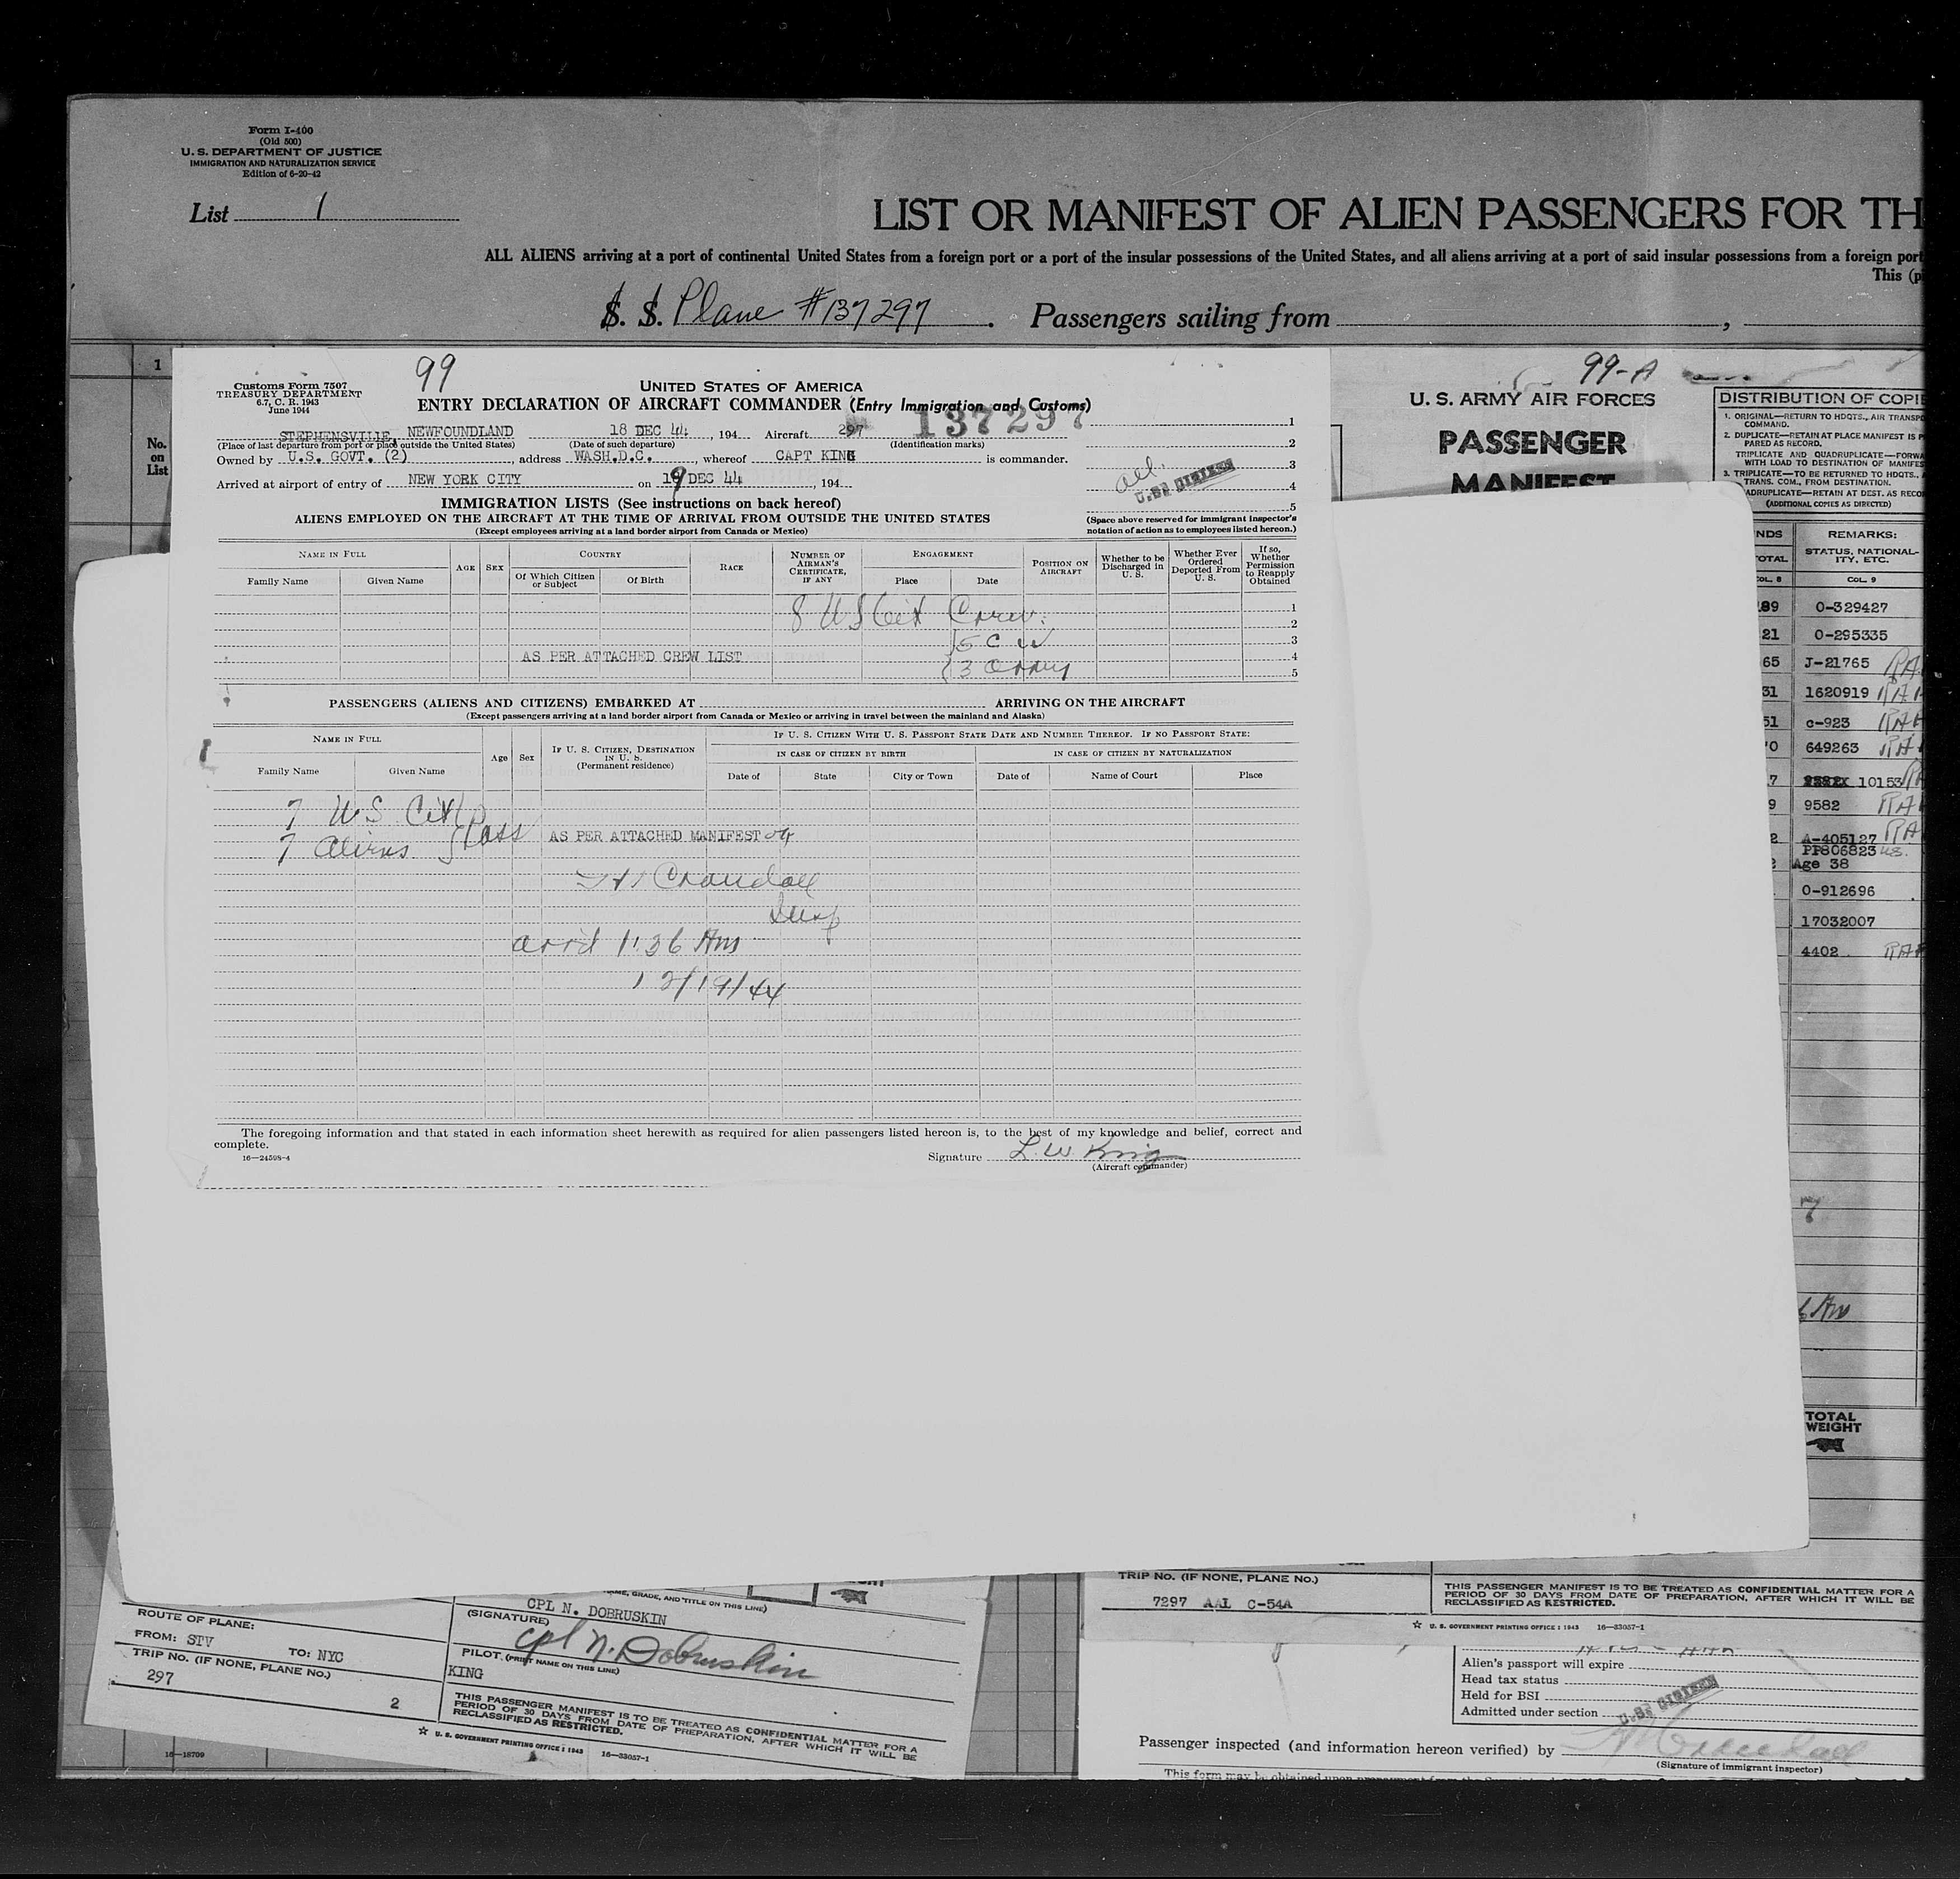 Form I-400
(Old 500)
U. S. DEPARTMENT OF JUSTICE
IMMIGRATION AND NATURALIZATION SERVICE
Edition of 6-20-42
List 1
LIST OR MANIFEST OF ALIEN PASSENGERS FOR TH
ALL ALIENS arriving at a port of continental United States from a foreign port or a port of the insular possessions of the United States, and all aliens arriving at a port of said insular possessions from a foreign port
This (p
S. S. Plane #137297 . Passengers sailing from ,
1
No.
on
List
99
Customs Form 7507
TREASURY DEPARTMENT
6.7, C. R. 1943
June 1944
UNITED STATES OF AMERICA
ENTRY DECLARATION OF AIRCRAFT COMMANDER (Entry Immigration and Customs)
137297
STEPHENSVILLE, NEWFOUNDLAND 18 DEC 44 , 194 Aircraft 297
(Place of last departure from port or place outside the United States) (Date of such departure) (Identification marks)
Owned by U.S. GOVT. (2) , address WASH.D.C. , whereof CAPT KING is commander.
Arrived at airport of entry of NEW YORK CITY on 19 DEC 44 , 194
1
2
3
4
5
U.S. CITIZEN
IMMIGRATION LISTS (See instructions on back hereof)
ALIENS EMPLOYED ON THE AIRCRAFT AT THE TIME OF ARRIVAL FROM OUTSIDE THE UNITED STATES
(Except employees arriving at a land border airport from Canada or Mexico)
(Space above reserved for immigrant inspector's
notation of action as to employees listed hereon.)
NAME IN FULL
Family Name Given Name
AGE SEX
COUNTRY
Of Which Citizen or Subject Of Birth
RACE
NUMBER OF AIRMAN'S CERTIFICATE, IF ANY
ENGAGEMENT
Place Date
POSITION ON AIRCRAFT
Whether to be Discharged in U. S.
Whether Ever Ordered Deported From U. S.
If so, Whether Permission to Reapply Obtained
8 US Cit Crew:
5 C
AS PER ATTACHED CREW LIST
3 Army
1
2
3
4
5
PASSENGERS (ALIENS AND CITIZENS) EMBARKED AT ARRIVING ON THE AIRCRAFT
(Except passengers arriving at a land border airport from Canada or Mexico or arriving in travel between the mainland and Alaska)
NAME IN FULL
Family Name Given Name
Age Sex
IF U. S. CITIZEN, DESTINATION IN U. S.
(Permanent residence)
IF U. S. CITIZEN WITH U. S. PASSPORT STATE DATE AND NUMBER THEREOF. IF NO PASSPORT STATE:
IN CASE OF CITIZEN BY BIRTH IN CASE OF CITIZEN BY NATURALIZATION
Date of State City or Town Date of Name of Court Place
7 US Cit
7 Aliens Pass
AS PER ATTACHED MANIFEST
Crandall
Insp
arrd 1:36 Am
12/19/44
The foregoing information and that stated in each information sheet herewith as required for alien passengers listed hereon is, to the best of my knowledge and belief, correct and
complete.
16—24598-4
Signature L W King
(Aircraft commander)
99-A
U. S. ARMY AIR FORCES
PASSENGER
MANIFEST
DISTRIBUTION OF COPIE
1. ORIGINAL—RETURN TO HDQTS., AIR TRANSPO
COMMAND.
2. DUPLICATE—RETAIN AT PLACE MANIFEST IS P
PARED AS RECORD.
TRIPLICATE AND QUADRUPLICATE—FORWA
WITH LOAD TO DESTINATION OF MANIFES
3. TRIPLICATE—TO BE RETURNED TO HDQTS.,
TRANS. COM., FROM DESTINATION.
ADRUPLICATE—RETAIN AT DEST. AS RECO
(ADDITIONAL COPIES AS DIRECTED)
NDS
OTAL
COL. 8
REMARKS:
STATUS, NATIONAL-
ITY, ETC.
COL. 9
89 O-329427
21 O-295335
65 J-21765 RA
31 1620919 RA
51 c-923 RA
0 649263 RA
7 10153 RA
9 9582 RA
2 A-405127 RA
PP806823 us.
2 Age 38
O-912696
17032007
4402 RA
7
Am
TOTAL
WEIGHT
NAME, GRADE, AND TITLE ON THIS LINE)
CPL N. DOBRUSKIN
(SIGNATURE)
Cpl N. Dobruskin
ROUTE OF PLANE:
FROM: STV TO: NYC
TRIP NO. (IF NONE, PLANE NO.)
297 2
PILOT (PRINT NAME ON THIS LINE)
KING
THIS PASSENGER MANIFEST IS TO BE TREATED AS CONFIDENTIAL MATTER FOR A
PERIOD OF 30 DAYS FROM DATE OF PREPARATION, AFTER WHICH IT WILL BE
RECLASSIFIED AS RESTRICTED.
☆ U. S. GOVERNMENT PRINTING OFFICE : 1943 16—33057-1
16—18709
TRIP NO. (IF NONE, PLANE NO.)
7297 AAL C-54A
THIS PASSENGER MANIFEST IS TO BE TREATED AS CONFIDENTIAL MATTER FOR A
PERIOD OF 30 DAYS FROM DATE OF PREPARATION, AFTER WHICH IT WILL BE
RECLASSIFIED AS RESTRICTED.
☆ U. S. GOVERNMENT PRINTING OFFICE : 1943 16—33057-1
Alien's passport will expire
Head tax status
Held for BSI
Admitted under section
U.S. CITIZEN
Passenger inspected (and information hereon verified) by
(Signature of immigrant inspector)
This form may be obtained upon